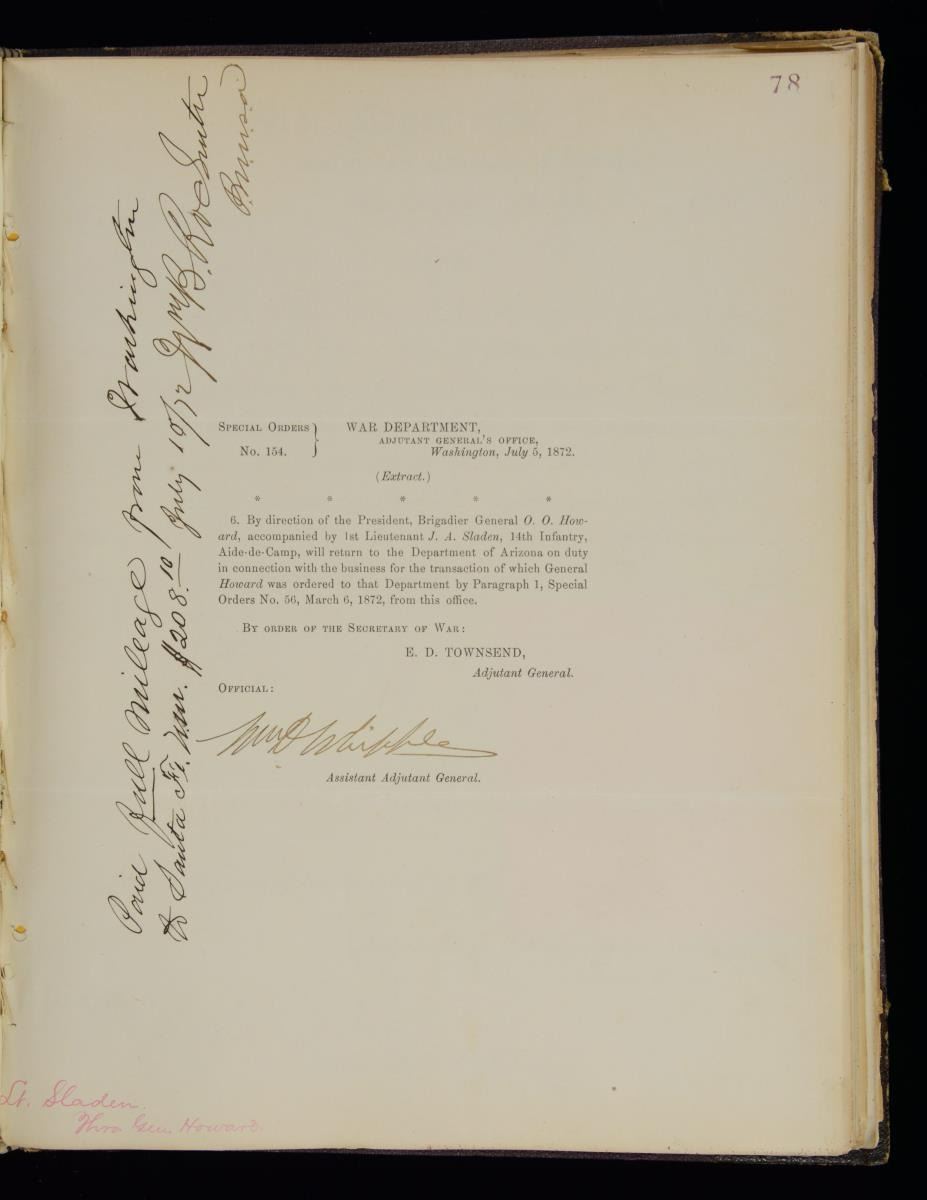 78
Paid full mileage from Washington
to Santa Fé. N.M. $208.10 July 19/72 Wm B. Rochester
SPECIAL ORDERS }
No. 154.
WAR DEPARTMENT,
ADJUTANT GENERAL'S OFFICE,
Washington, July 5, 1872.
(Extract.)
* * * * *
6. By direction of the President, Brigadier General O. O. How-
ard, accompanied by 1st Lieutenant J. A. Sladen, 14th Infantry,
Aide-de-Camp, will return to the Department of Arizona on duty
in connection with the business for the transaction of which General
Howard was ordered to that Department by Paragraph 1, Special
Orders No. 56, March 6, 1872, from this office.
BY ORDER OF THE SECRETARY OF WAR:
E. D. TOWNSEND,
Adjutant General.
OFFICIAL:
Wm D Whipple
Assistant Adjutant General.
Lt. Sladen.
Thro Gen. Howard.